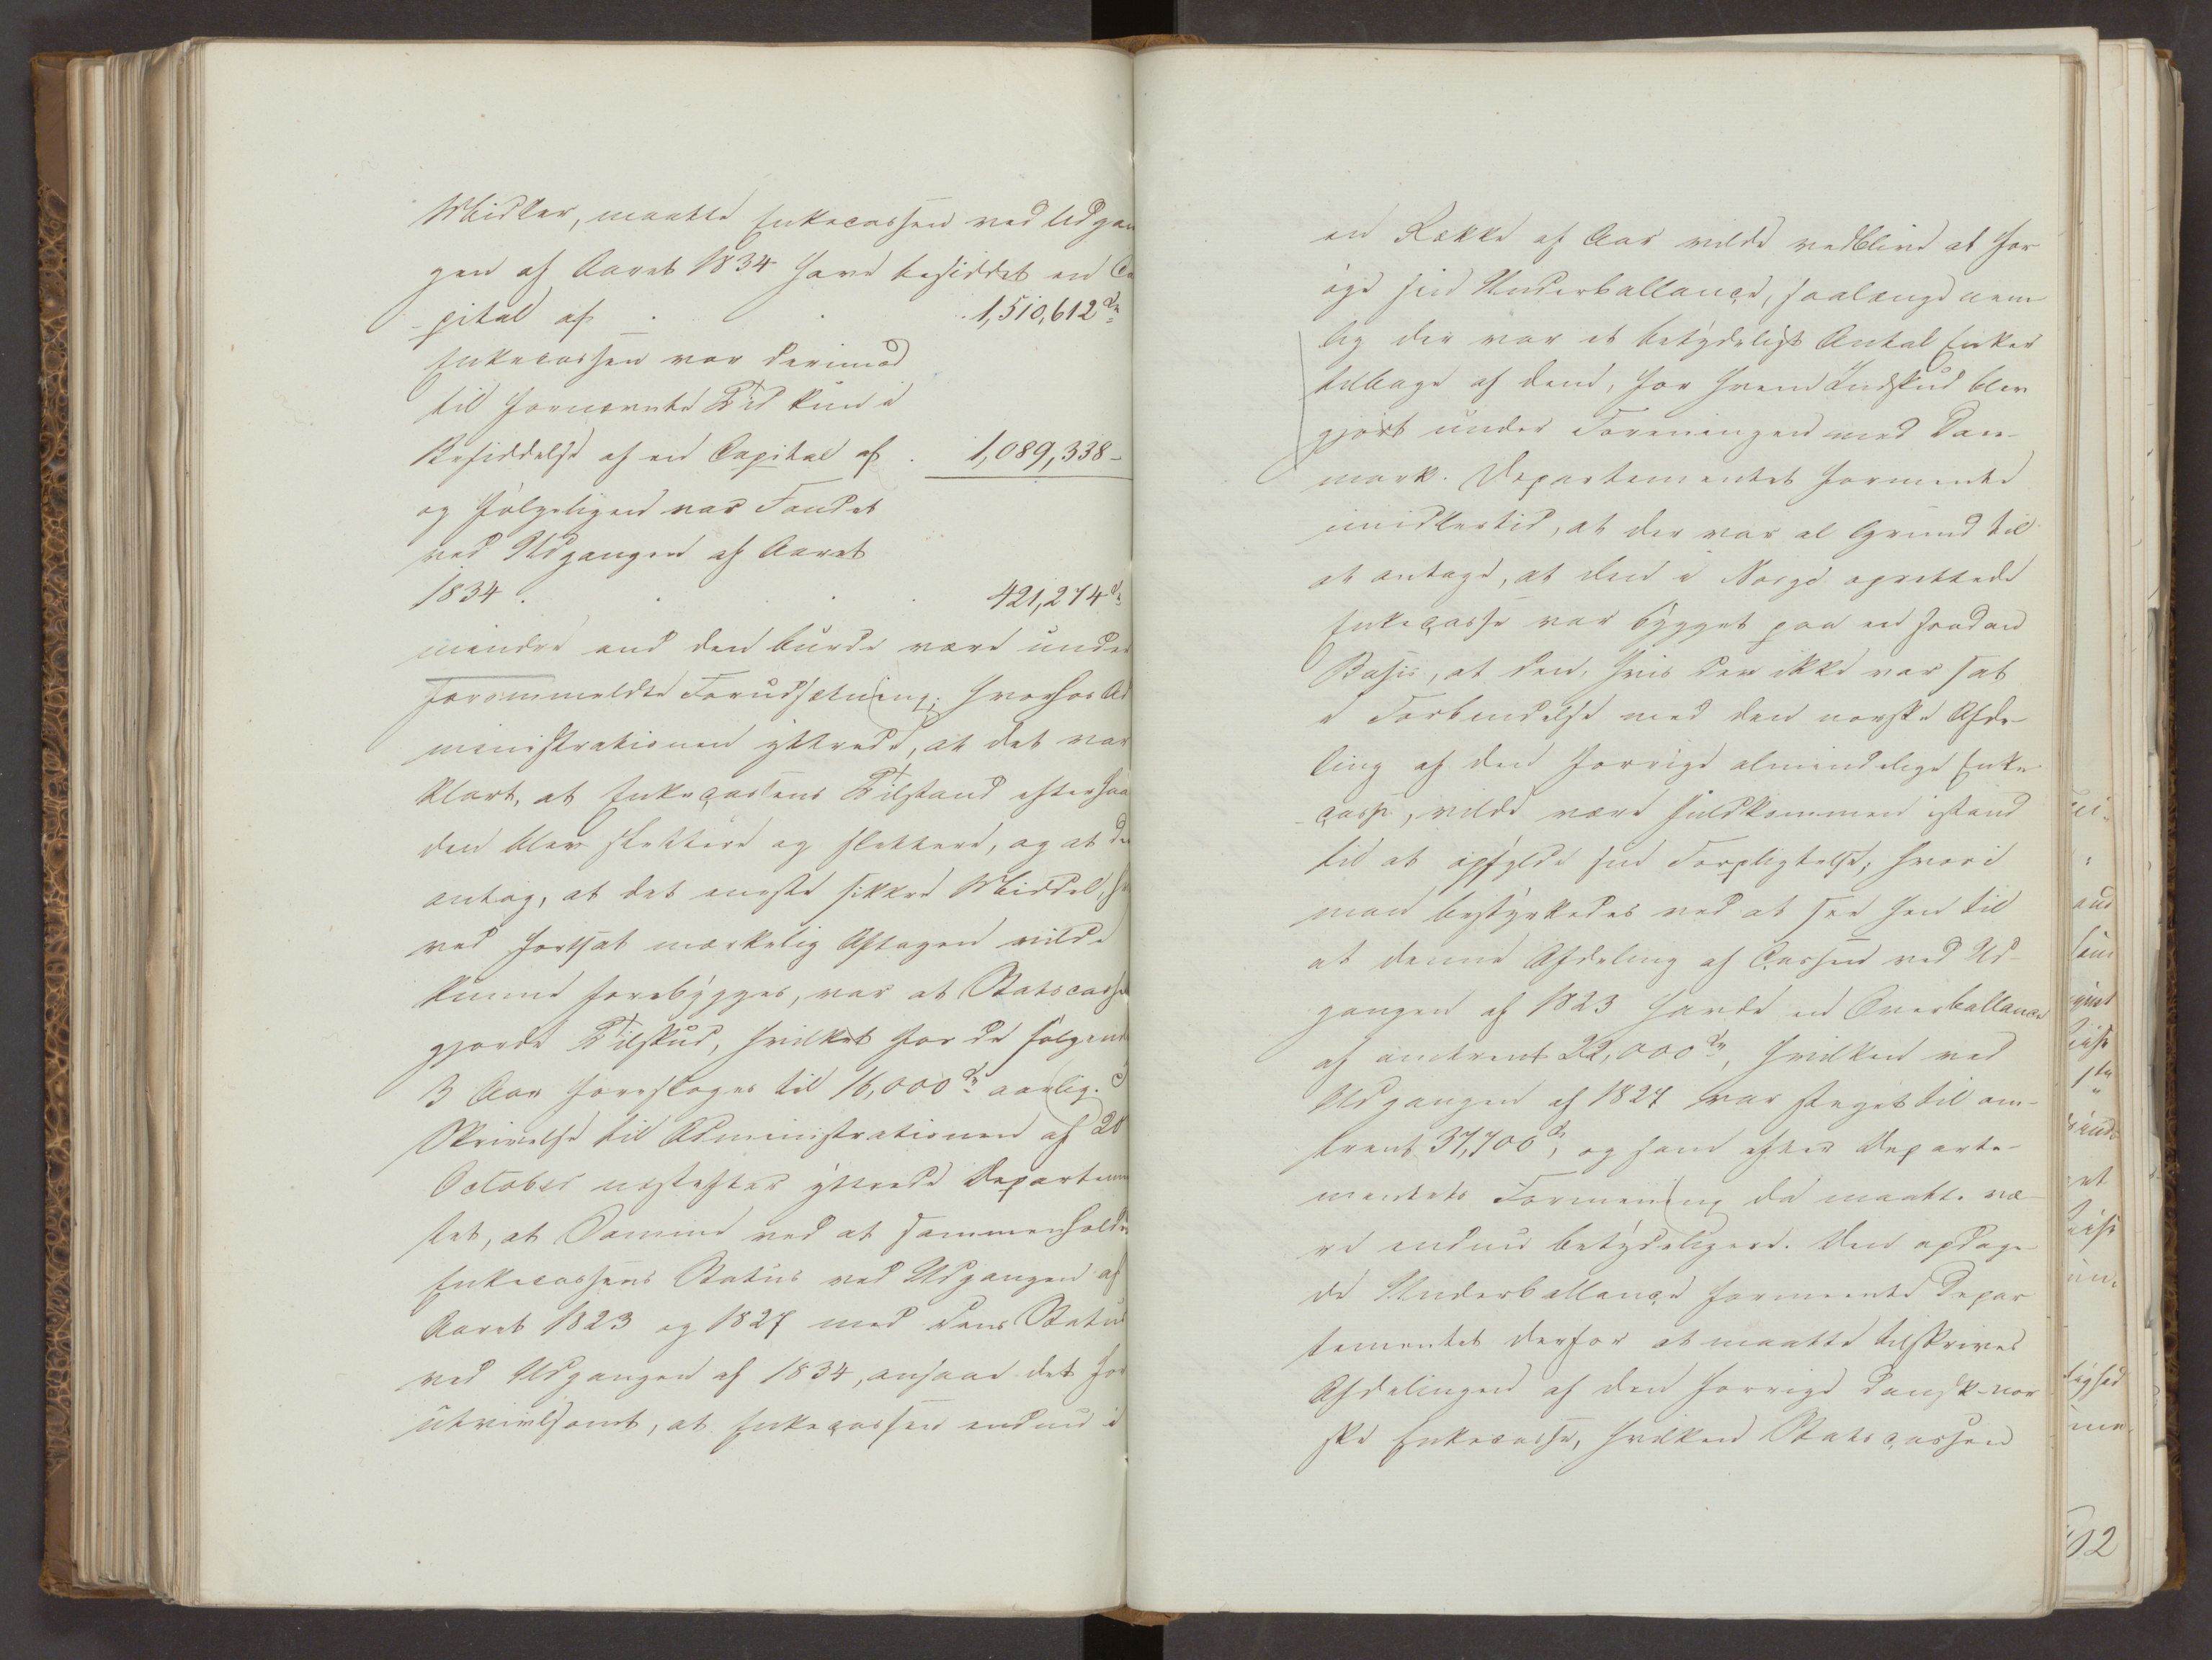 Midler, maatte Enkecassen ved Udgan
gen af Aaret 1834 have besiddet en Ca
pital af . . 1,510,612 Sp
Enkecassen var derimod
til fornævnte Tid kun i
Besiddelse af en Capital af . 1,089,338 -
og følgeligen var Fondet
ved Udgangen af Aaret
1834 . . . . 421,274 Sp
mindre end den burde være under
forommeldte Forudsætning; hvorhos Ad
ministrationen yttrede, at det var
klart, at Enkecassens Tilstand efterhaa
den blev slettere og slettere, og at den
antog, at det eneste sikkre Middel, hvor
ved fortsat mærkelig Aftagen vilde
kunne forebygges, var at Statscassen
gjorde Tilskud, hvilket for de følgende
3 Aar foresloges til 16,000 Sp aarlig. I
Skrivelse til Administrationen af 20
October næstefter yttrede Departemen
tet, at Samme ved at sammenholde
Enkecassens Status ved Udgangen af
Aaret 1823 og 1827 med dens Status
ved Udgangen af 1834, ansaae det for
utvivlsomt, at Enkecassen endnu i
en Række af Aar vilde vedblive at for
øge sin Underballance, saalænge nem-
lig der var et betydeligt Antal Enker
tilbage af dem, for hvem Indskud blev
gjort under Foreningen med Dan-
mark. Departementet formente
imidlertid, at der var al Grund til
at antage, at den i Norge oprettede
Enkecasse var bygget paa en saadan
Basis, at den, hvis den ikke var sat
i Forbindelse med den norske Afde-
ling af den forrige almindelige Enke-
casse, vilde være fuldkommen istand
til at opfylde sin Forpligtelse, hvori
man bestyrkedes ved at see hen til
at denne Afdeling af Cassen ved Ud-
gangen af 1823 havde en Overballance
af omtrent 22,000 Sp, hvilken ved
Udgangen af 1827 var steget til om-
trent 37,700 Sp, og som efter Departe-
mentets Formening da maatte væ-
re endnu betydeligere. Den opdage-
de Underballance formeente Depar
tementet derfor at maatte tilskrives
Afdelingen af den forrige dansk-nor
ske Enkecasse, hvilken Statscassen